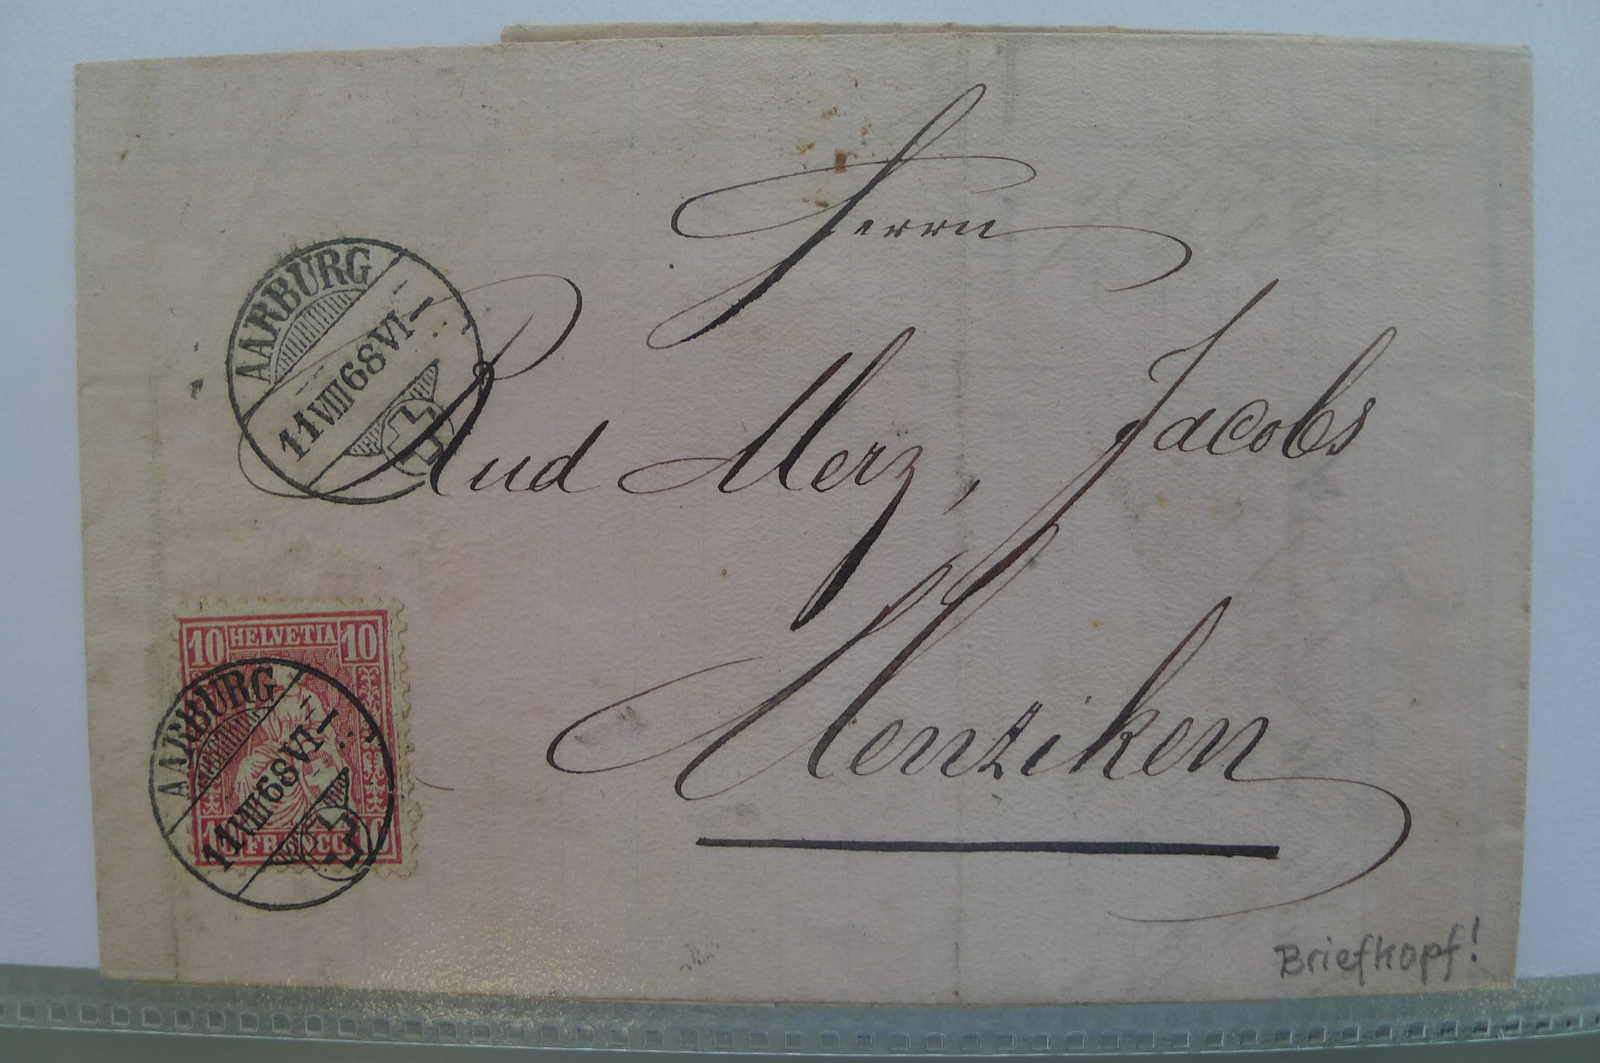 Herrn
Rud Merz, Jacobs
Menziken
AARBURG
11 VIII 68 VI—
10 HELVETIA 10
AARBURG
11 VIII 68 VI—
10 FRANCO 10
Briefkopf!